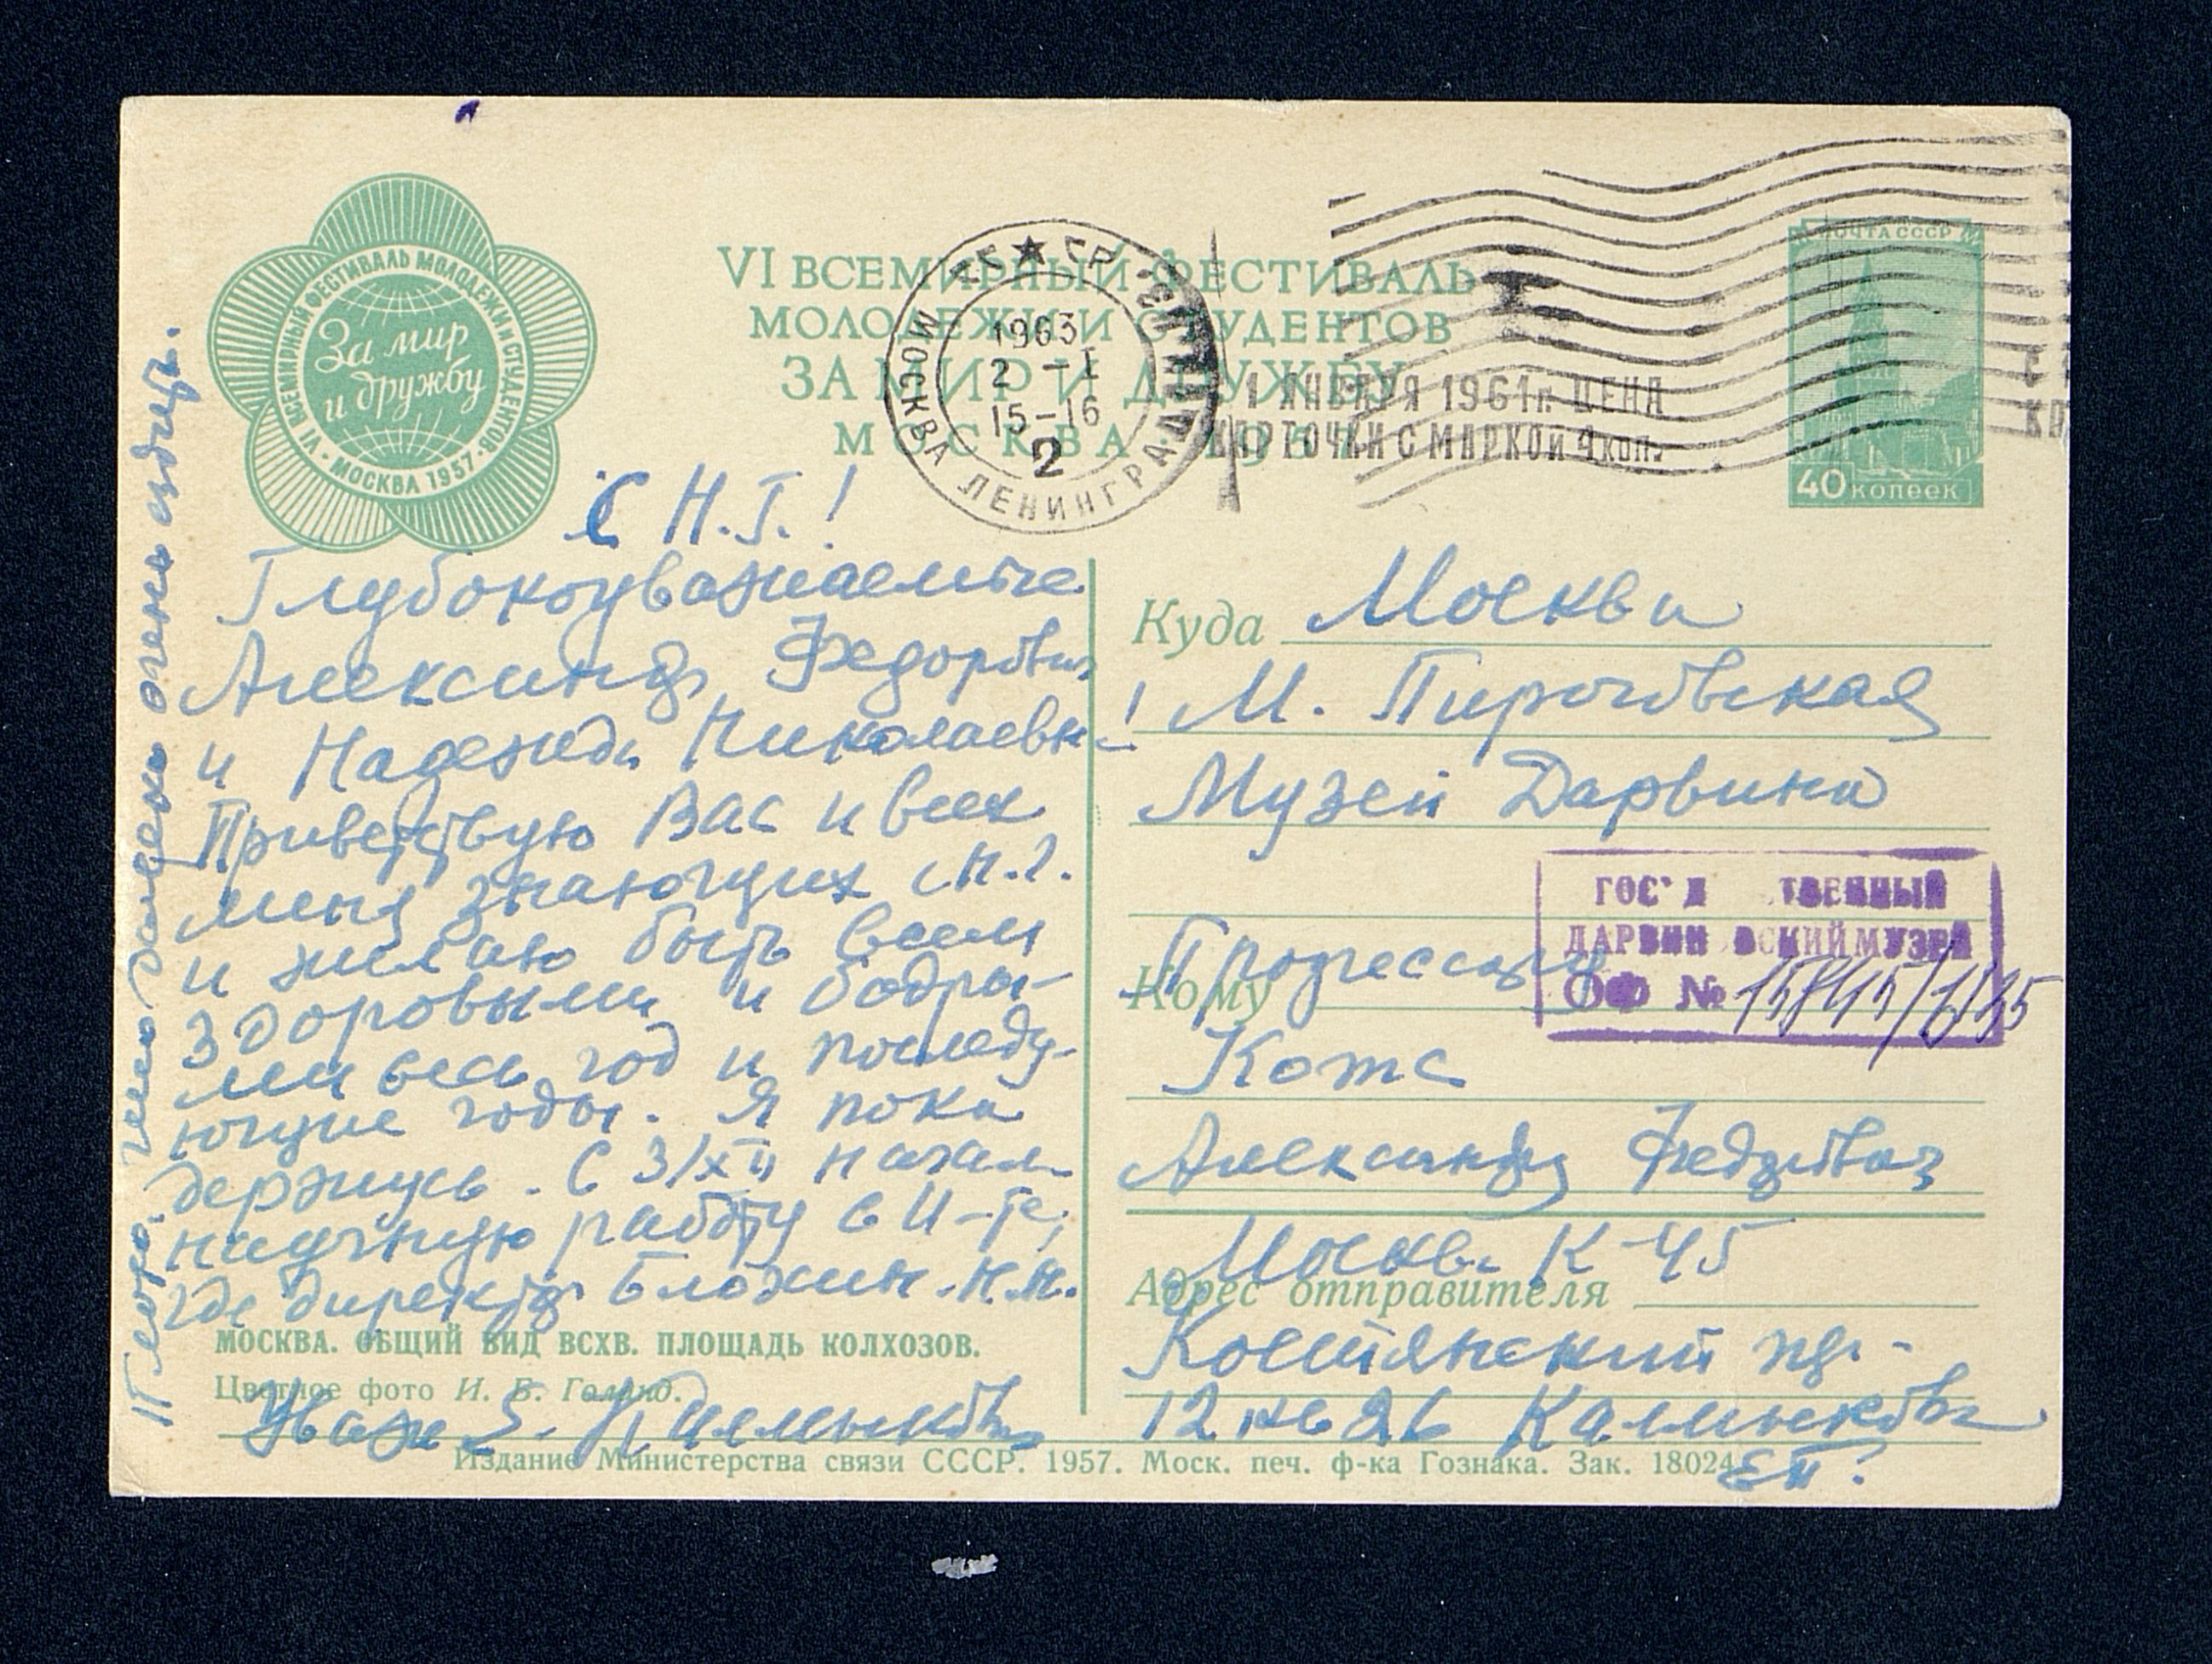 VI ВСЕМИРНЫЙ ФЕСТИВАЛЬ МОЛОДЕЖИ И СТУДЕНТОВ · МОСКВА 1957 ·
За мир
и дружбу
VI ВСЕМИРНЫЙ ФЕСТИВАЛЬ
МОЛОДЕЖИ И СТУДЕНТОВ
ЗА МИР И ДРУЖБУ
МОСКВА 1957
МОСКВА ЛЕНИНГРАД
1963
2 - I
15-16
2
1 ЯНВАРЯ 1961г. ЦЕНА
КАРТОЧКИ С МАРКОЙ 4 коп.
ПОЧТА СССР
40 копеек
С Н.Г.!
Глубокоуважаемые
Александр Федорович
и Надежда Николаевна!
Приветствую Вас и всех
меня знающих с Н.Г.
и желаю быть всем
здоровыми и бодры-
ми весь год и последу-
ющие годы. Я пока
держусь. С 3/XII начал
научную работу в И-те,
где директор Блохин Н.Н.
МОСКВА. ОБЩИЙ ВИД ВСХВ. ПЛОЩАДЬ КОЛХОЗОВ.
Цветное фото И. Б. Голанд.
Уваж Е. Калмыков
далеко очень ездить.
Куда Москва
М. Пироговская
Музей Дарвина
ГОС Д ТВЕННЫЙ
ДАРВИНОВСКИЙ МУЗЕЙ
ОФ № 15845/1/35
Кому Профессору
Котс
Александру Федоровичу
Москва К-45
Адрес отправителя
Костянский пр.-
12 кв 26 Калмыкова
ЕП.
Издание Министерства связи СССР. 1957. Моск. печ. ф-ка Гознака. Зак. 18024